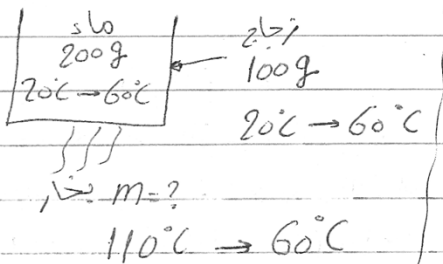 ماء
200g
20°C → 60°C
زجاج
100g
20°C → 60°C
بخار m=?
110°C → 60°C